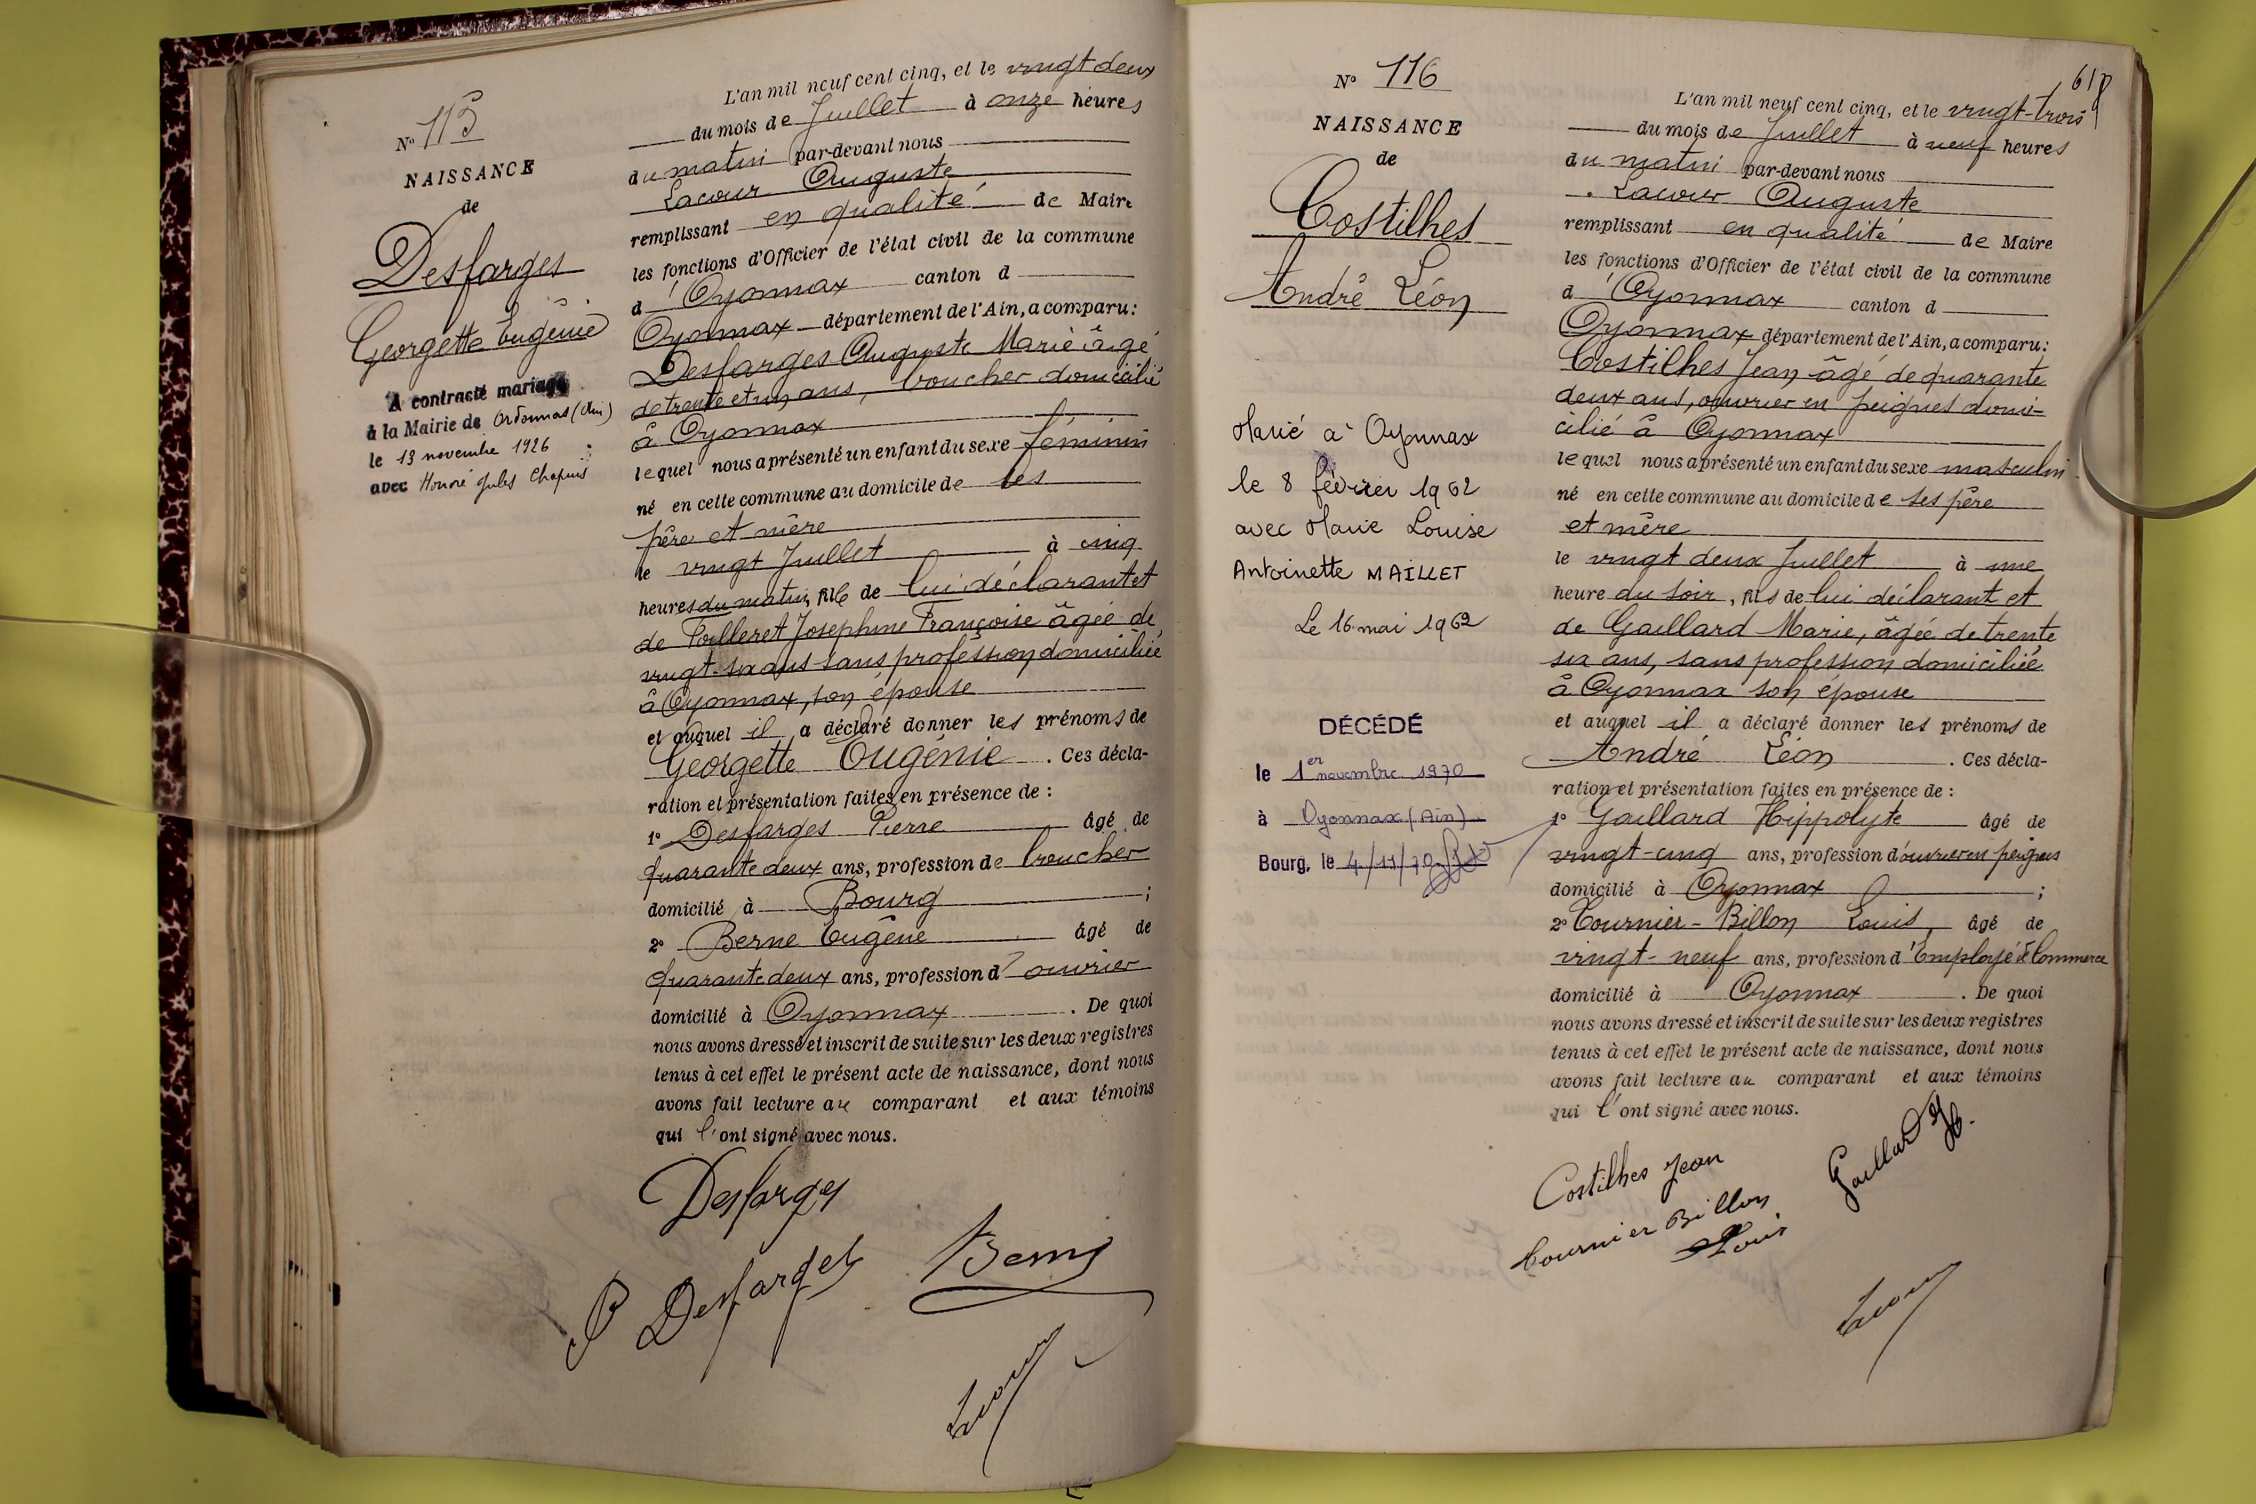 N° 115
NAISSANCE
de
Desfarges
Georgette Eugénie
A contracté mariage
à la Mairie de Ordonnas (Ain)
le 13 novembre 1926
avec Honoré Jules Chapuis
L'an mil neuf cent cinq, et le vingt deux
du mois de Juillet à onze heures
du matin par-devant nous
Lacour Auguste
remplissant en qualité de Maire
les fonctions d'Officier de l'état civil de la commune
d'Oyonnax canton d
Oyonnax département de l'Ain, a comparu:
Desfarges Auguste Marie âgé
de trente et un ans, boucher domicilié
à Oyonnax
lequel nous a présenté un enfant du sexe féminin
né en cette commune au domicile de ses
père et mère
le vingt Juillet à cinq
heures du matin, fille de lui déclarant et
de Joséphine Françoise âgée de
vingt-six ans sans profession domiciliée
à Oyonnax, son épouse
et auquel il a déclaré donner les prénoms de
Georgette Eugénie. Ces décla-
ration et présentation faites en présence de :
1° Desfarges Pierre âgé de
quarante deux ans, profession de boucher
domicilié à Bourg ;
2° Berne Eugène âgé de
quarante deux ans, profession d'ouvrier
domicilié à Oyonnax. De quoi
nous avons dressé et inscrit de suite sur les deux registres
tenus à cet effet le présent acte de naissance, dont nous
avons fait lecture au comparant et aux témoins
qui l'ont signé avec nous.
Desfarges
P Desfarges
Berne
Lacour
N° 116
NAISSANCE
de
Costilhes
André Léon
Marié à Oyonnax
le 8 février 1962
avec Marie Louise
Antoinette MAILLET
Le 16 mai 1962
DÉCÉDÉ
le 1er novembre 1970
à Oyonnax (Ain)
Bourg, le 4/11/70
L'an mil neuf cent cinq, et le vingt-trois
du mois de Juillet à neuf heures
du matin par-devant nous
Lacour Auguste
remplissant en qualité de Maire
les fonctions d'Officier de l'état civil de la commune
d'Oyonnax canton d
Oyonnax département de l'Ain, a comparu:
Costilhes Jean âgé de quarante
deux ans, ouvrier en peignes domi-
cilié à Oyonnax
lequel nous a présenté un enfant du sexe masculin
né en cette commune au domicile de ses père
et mère
le vingt deux Juillet à une
heure du soir, fils de lui déclarant et
de Gaillard Marie, âgée de trente
six ans, sans profession domiciliée
à Oyonnax son épouse
et auquel il a déclaré donner les prénoms de
André Léon. Ces décla-
ration et présentation faites en présence de :
1° Gaillard Hippolyte âgé de
vingt-cinq ans, profession d'ouvrier en peignes
domicilié à Oyonnax ;
2° Tournier-Billon Louis, âgé de
vingt-neuf ans, profession d'Employé de Commerce
domicilié à Oyonnax. De quoi
nous avons dressé et inscrit de suite sur les deux registres
tenus à cet effet le présent acte de naissance, dont nous
avons fait lecture au comparant et aux témoins
qui l'ont signé avec nous.
Costilhes Jean
Gaillard H.
Tournier Billon
Louis
Lacour